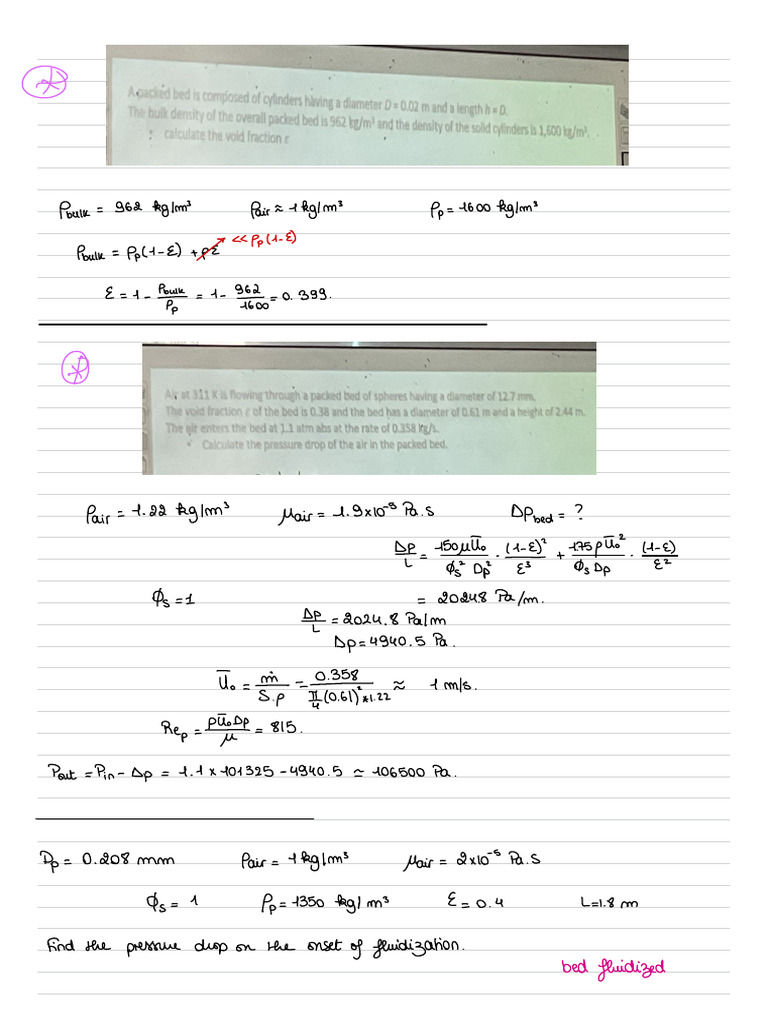 A packed bed is composed of cylinders having a diameter D = 0.02 m and a length h = D.
The bulk density of the overall packed bed is 962 kg/m³ and the density of the solid cylinders is 1,600 kg/m³.
calculate the void fraction ε
ρbulk = 962 kg/m³ ρair ≈ 1 kg/m³ ρp = 1600 kg/m³
<< ρp(1-ε)
ρbulk = ρp(1-ε) + ρε
ε = 1 - ρbulk/ρp = 1 - 962/1600 = 0.399.
Air at 311 K is flowing through a packed bed of spheres having a diameter of 12.7 mm.
The void fraction ε of the bed is 0.38 and the bed has a diameter of 0.61 m and a height of 2.44 m.
The air enters the bed at 1.1 atm abs at the rate of 0.358 kg/s.
• Calculate the pressure drop of the air in the packed bed.
ρair = 1.22 kg/m³ μair = 1.9x10⁻⁵ Pa.s Δpbed = ?
Δp/L = 150μū₀/Φs² Dp² · (1-ε)²/ε³ + 175ρū₀²/Φs Dp · (1-ε)/ε²
Φs = 1 = 20248 Pa/m.
Δp/L = 2024.8 Pa/m
Δp = 4940.5 Pa.
ū₀ = ṁ/S.ρ = 0.358/π/4 (0.61)² *1.22 ≈ 1 m/s.
Rep = ρū₀Dp/μ = 815.
Pout = Pin - Δp = 1.1 x 101325 - 4940.5 ≃ 106500 Pa.
Dp = 0.208 mm ρair = 1 kg/m³ μair = 2x10⁻⁵ Pa.s
Φs = 1 ρp = 1350 kg/m³ ε = 0.4 L=1.8 m
Find the pressure drop on the onset of fluidization.
bed fluidized